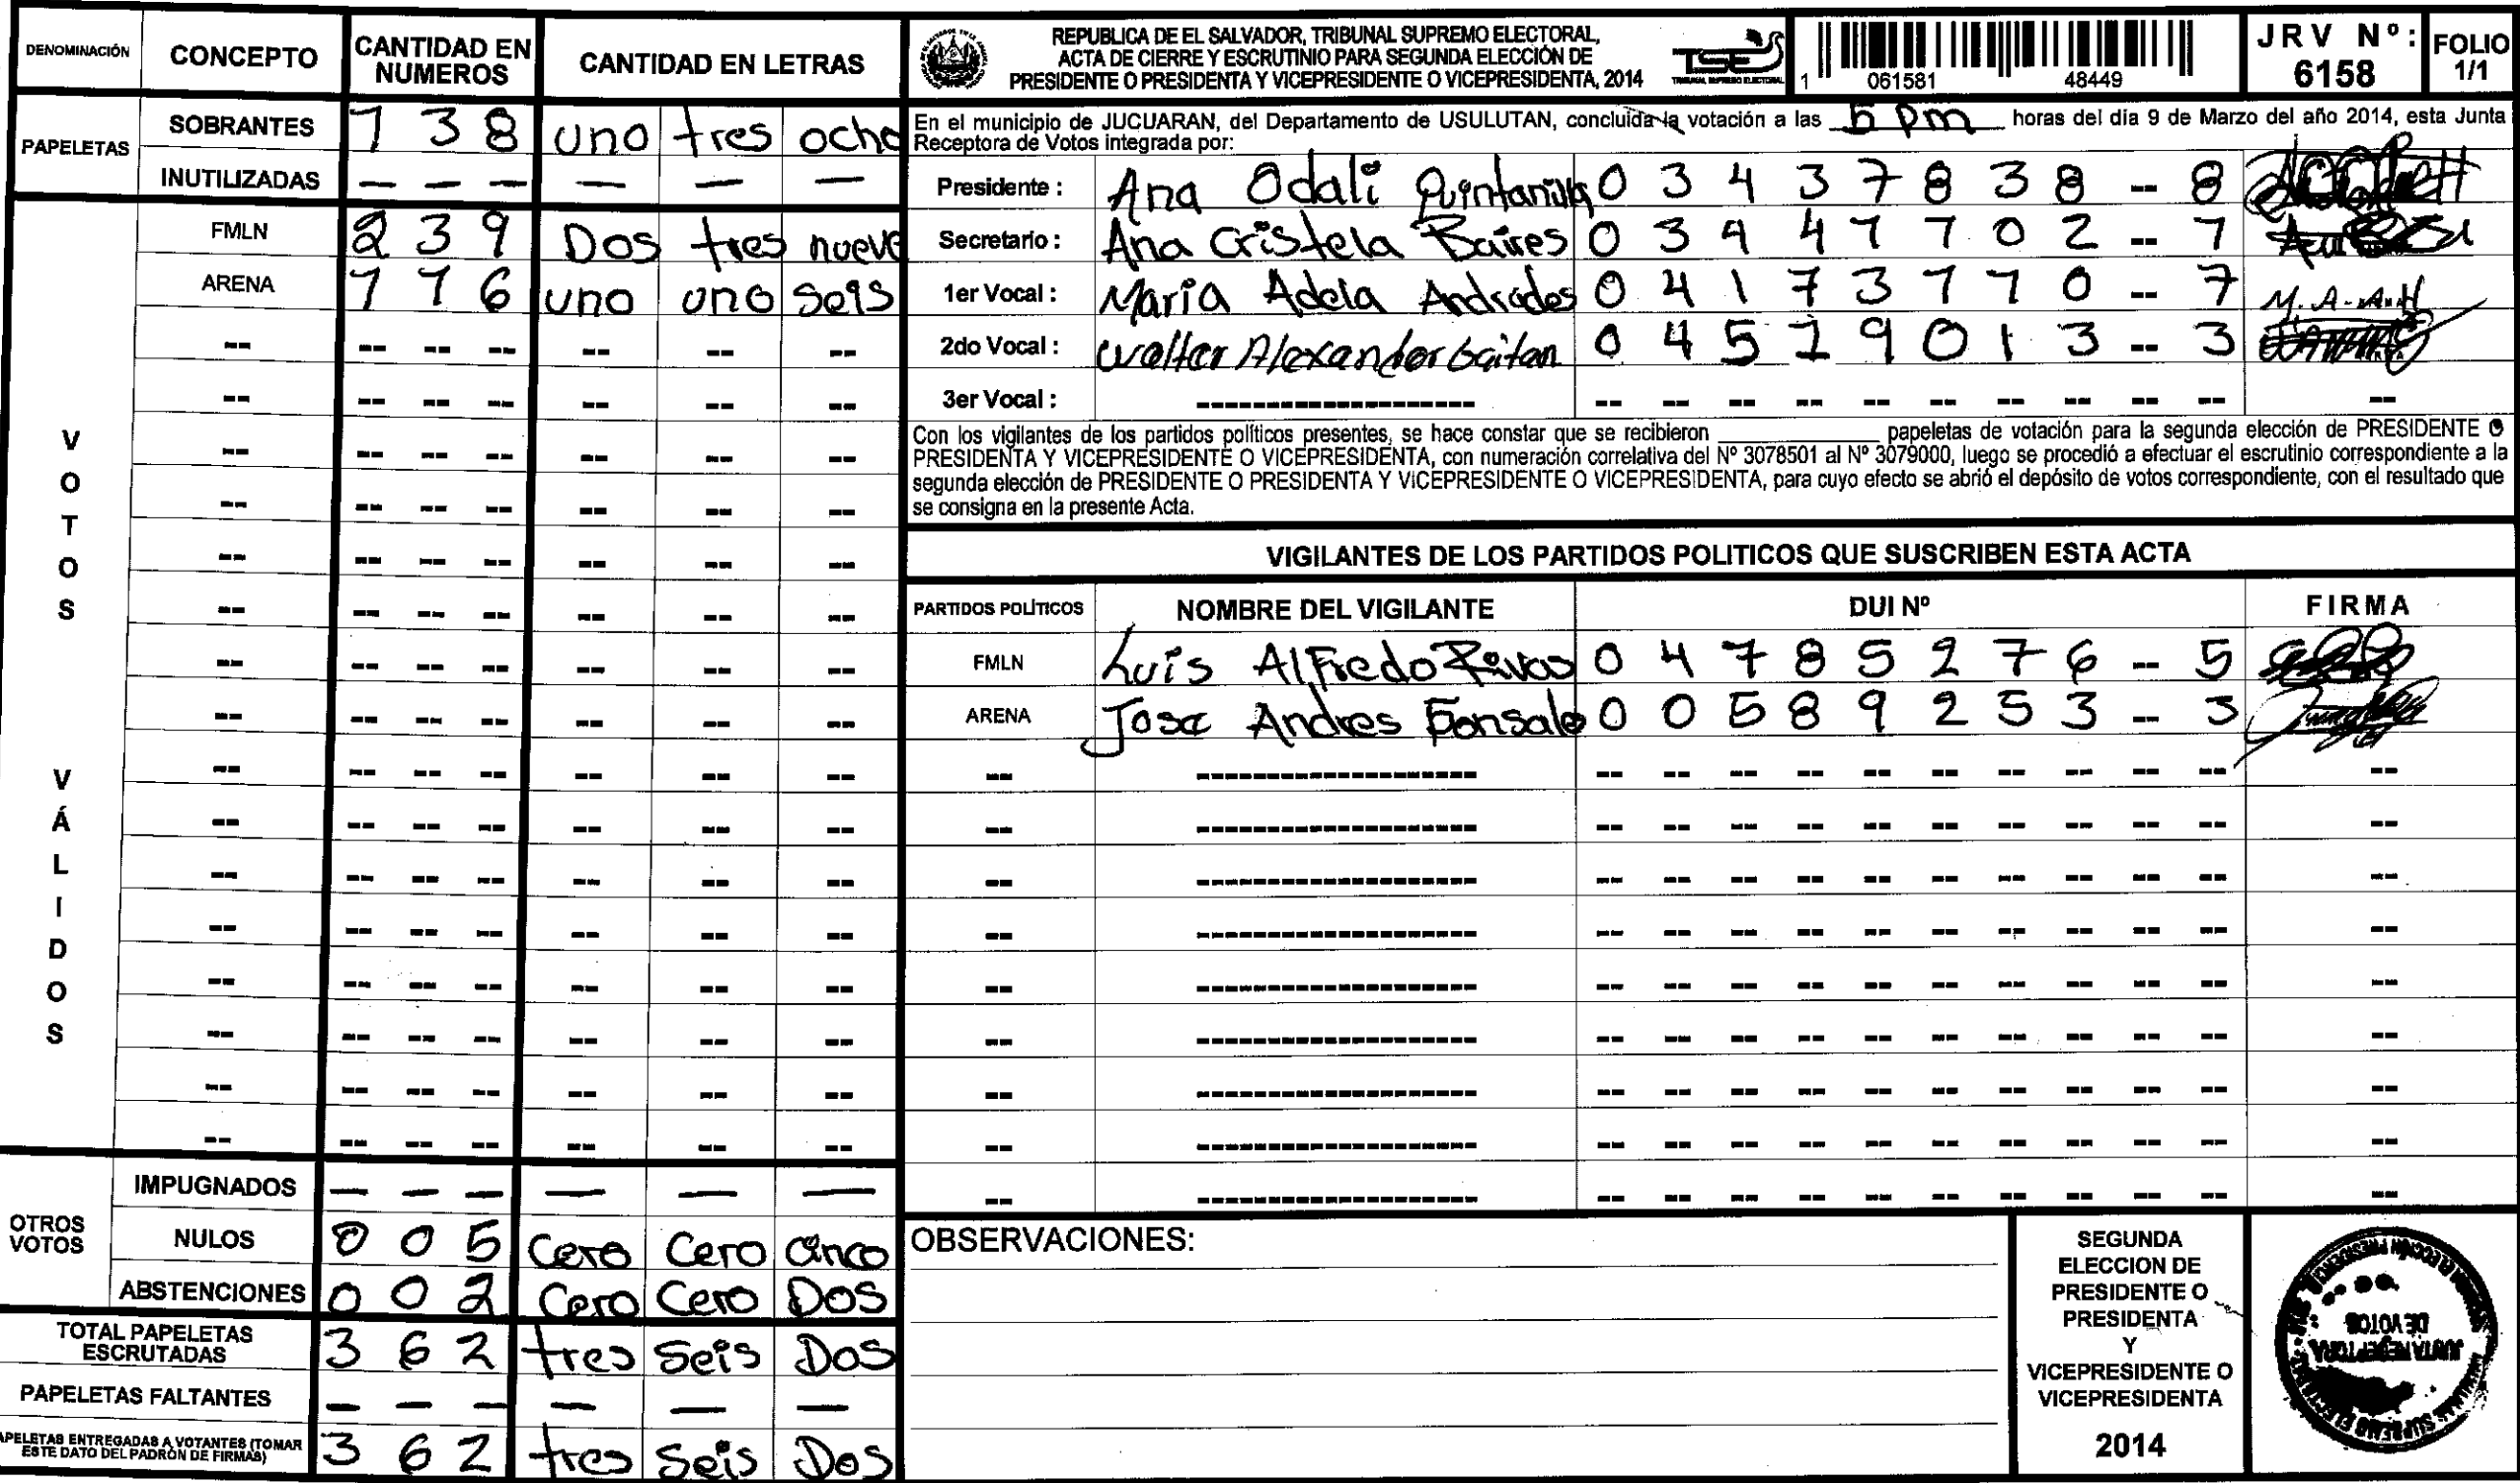 DENOMINACIÓN CONCEPTO CANTIDAD EN NUMEROS CANTIDAD EN LETRAS
PAPELETAS
SOBRANTES 1 3 8 uno tres ocho
INUTILIZADAS — — — — — —
VOTOS VÁLIDOS
FMLN 2 3 9 Dos tres nueve
ARENA 1 1 6 uno uno seis
OTROS VOTOS
IMPUGNADOS — — — — — —
NULOS 0 0 5 Cero Cero Cinco
ABSTENCIONES 0 0 2 Cero Cero Dos
TOTAL PAPELETAS ESCRUTADAS 3 6 2 tres Seis Dos
PAPELETAS FALTANTES — — — — — —
APELETAS ENTREGADAS A VOTANTES (TOMAR ESTE DATO DEL PADRÓN DE FIRMAS) 3 6 2 tres Seis Dos
REPUBLICA DE EL SALVADOR, TRIBUNAL SUPREMO ELECTORAL,
ACTA DE CIERRE Y ESCRUTINIO PARA SEGUNDA ELECCIÓN DE
PRESIDENTE O PRESIDENTA Y VICEPRESIDENTE O VICEPRESIDENTA, 2014
TSE
TRIBUNAL SUPREMO ELECTORAL
1 061581 48449
JRV Nº: 6158
FOLIO 1/1
En el municipio de JUCUARAN, del Departamento de USULUTAN, concluida la votación a las 5 pm horas del día 9 de Marzo del año 2014, esta Junta
Receptora de Votos integrada por:
Presidente : Ana Odali Quintanilla 0 3 4 3 7 8 3 8 -- 8
Secretario : Ana Cristela Baires 0 3 9 4 7 7 0 2 -- 7
1er Vocal : Maria Adela Andrades 0 4 1 7 3 7 7 0 -- 7 M.A.A.H
2do Vocal : Walter Alexander Gaitan 0 4 5 1 9 0 1 3 -- 3
3er Vocal : -- -- -- -- -- -- -- -- -- -- --
Con los vigilantes de los partidos políticos presentes, se hace constar que se recibieron ____________ papeletas de votación para la segunda elección de PRESIDENTE O
PRESIDENTA Y VICEPRESIDENTE O VICEPRESIDENTA, con numeración correlativa del Nº 3078501 al Nº 3079000, luego se procedió a efectuar el escrutinio correspondiente a la
segunda elección de PRESIDENTE O PRESIDENTA Y VICEPRESIDENTE O VICEPRESIDENTA, para cuyo efecto se abrió el depósito de votos correspondiente, con el resultado que
se consigna en la presente Acta.
VIGILANTES DE LOS PARTIDOS POLITICOS QUE SUSCRIBEN ESTA ACTA
PARTIDOS POLÍTICOS NOMBRE DEL VIGILANTE DUI Nº FIRMA
FMLN Luis Alfredo Rivas 0 4 7 8 5 2 7 6 -- 5
ARENA Jose Andres Fonsalo 0 0 5 8 9 2 5 3 -- 3
OBSERVACIONES:
SEGUNDA
ELECCION DE
PRESIDENTE O
PRESIDENTA
Y
VICEPRESIDENTE O
VICEPRESIDENTA
2014
JUNTA RECEPTORA
DE VOTOS